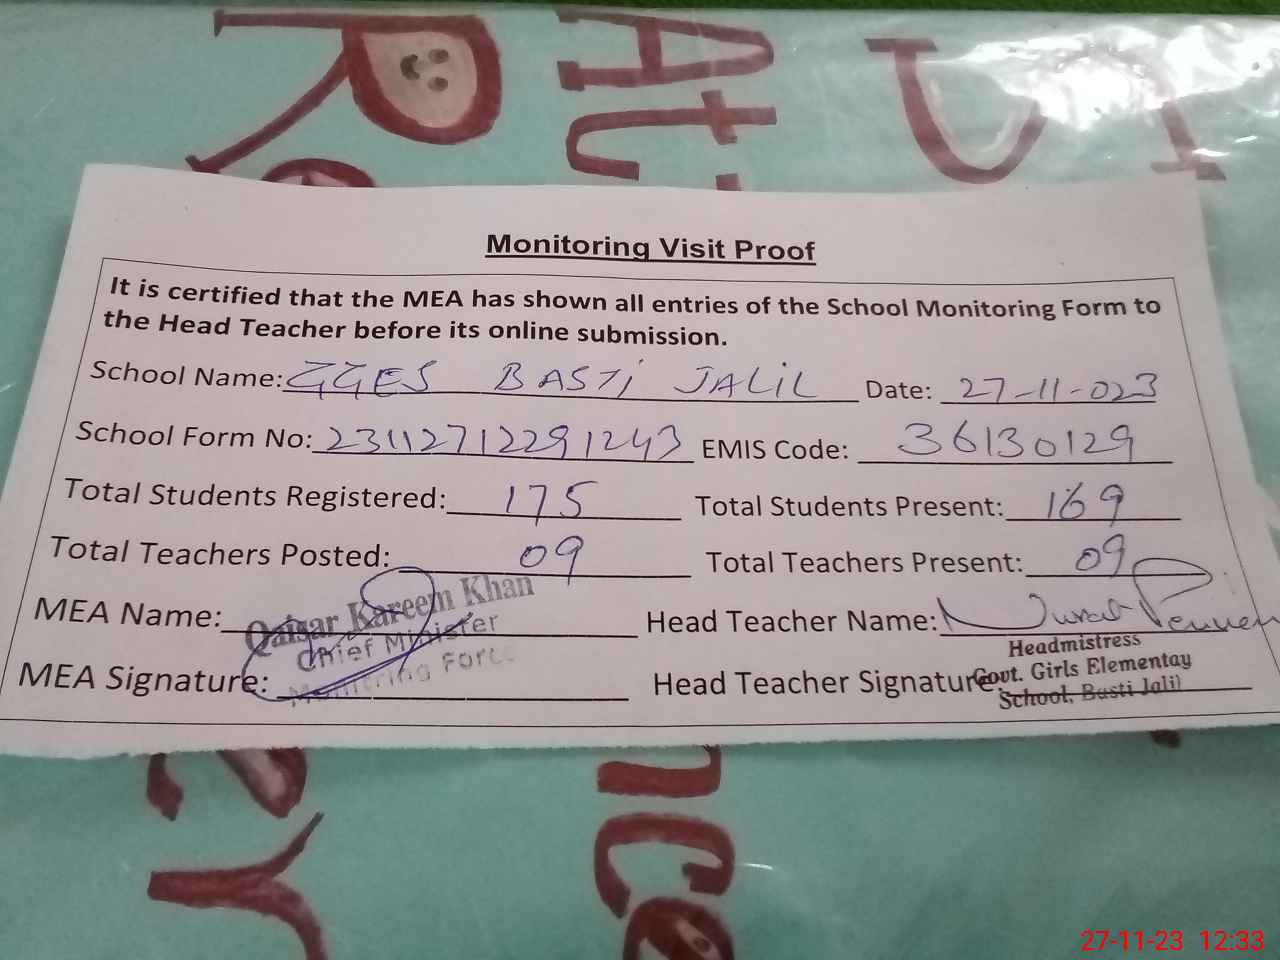 Monitoring Visit Proof
It is certified that the MEA has shown all entries of the School Monitoring Form to
the Head Teacher before its online submission.
School Name: GGES BASTi JALiL Date: 27-11-023
School Form No: 23112712291243 EMIS Code: 36130129
Total Students Registered: 175 Total Students Present: 169
Total Teachers Posted: 09 Total Teachers Present: 09
MEA Name: Qaisar Kareem Khan Head Teacher Name:
Chief Minister Headmistress
MEA Signature: Monitring Force Head Teacher Signature: Govt. Girls Elementay
School, Basti Jalil
27-11-23 12:33